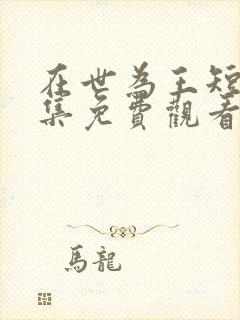 在世為王短
集免費觀看
馬龍